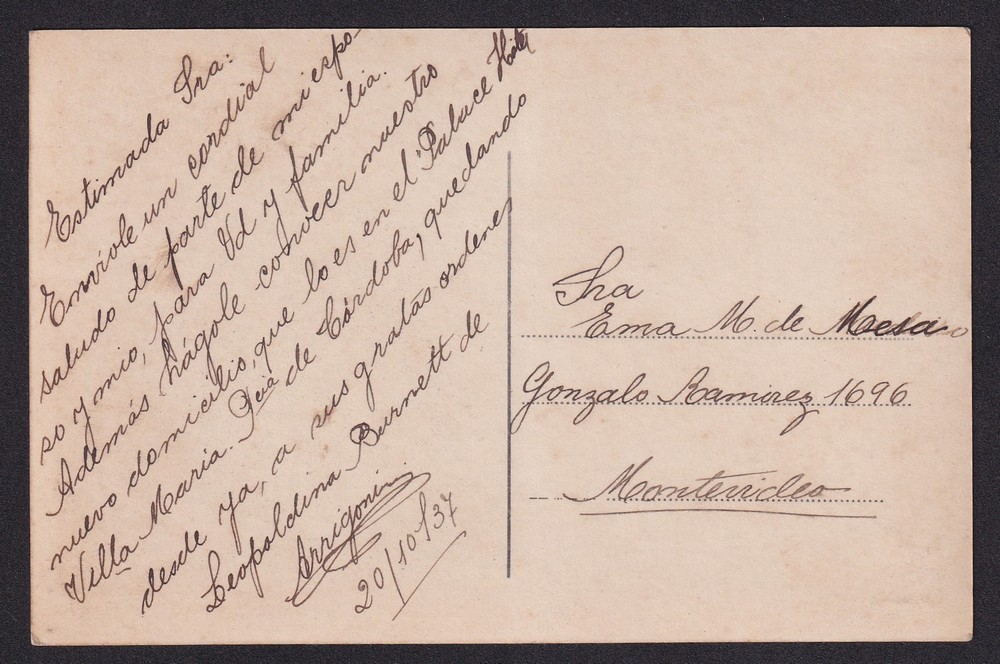 Estimada Sra:
Envíole un cordial
saludo de parte de mi espo-
so y mio, para Vd y familia.
Además hágole conocer nuestro
nuevo domicilio, que lo es en el Palace Hotel
Villa María. Pcia de Córdoba, quedando
desde ya, a sus gratas ordenes
Leopoldina Burnett de
Arrigoni
20/10/37
Sra
Ema M. de
Gonzalo Ramirez 1696
Montevideo